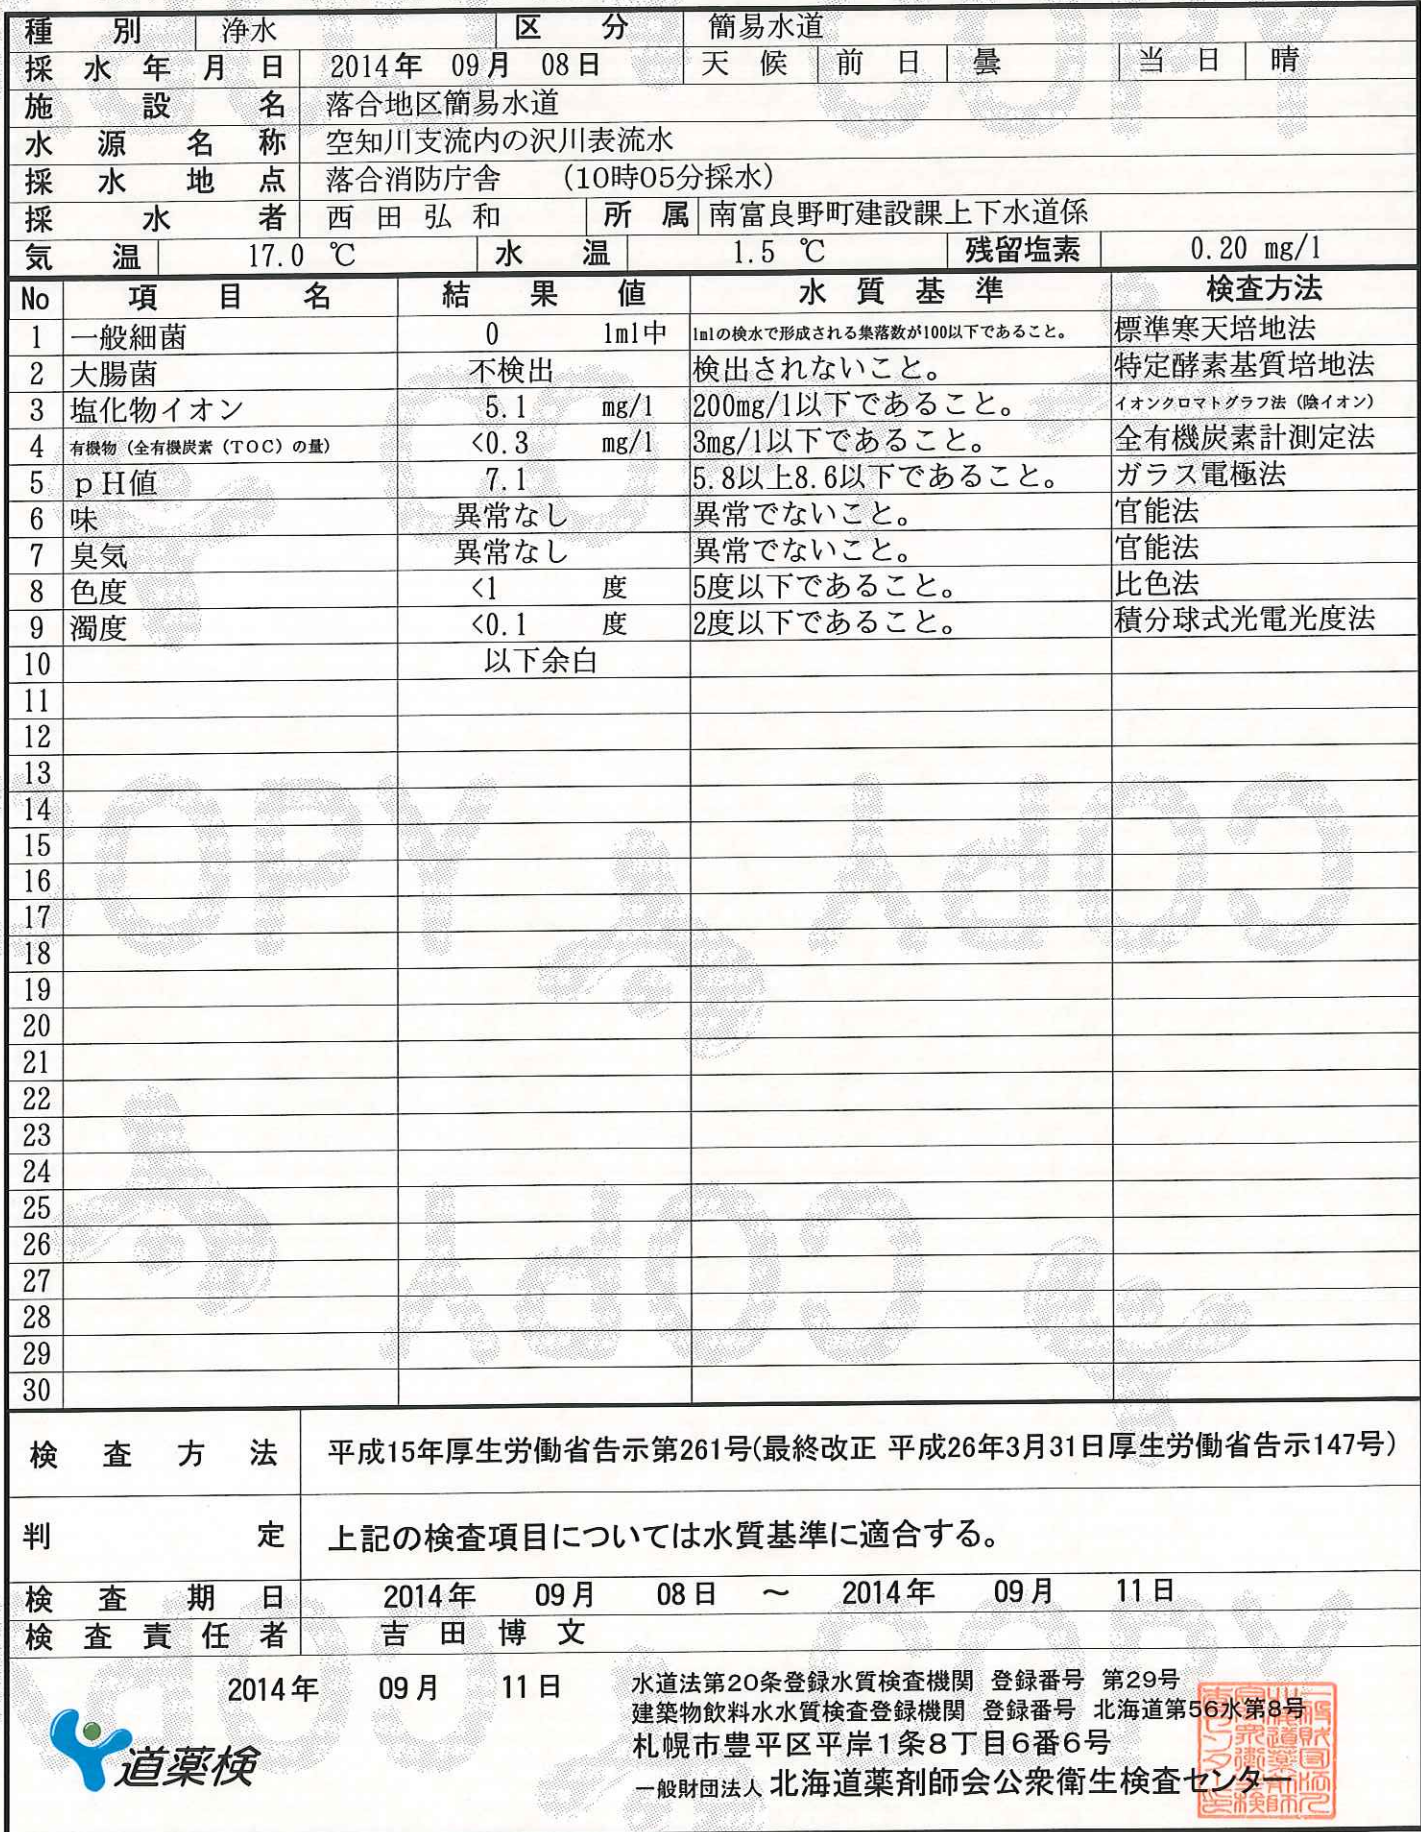 種別 浄水 区分 簡易水道
採水年月日 2014年 09月 08日 天候 前日 曇 当日 晴
施設名 落合地区簡易水道
水源名称 空知川支流内の沢川表流水
採水地点 落合消防庁舎 (10時05分採水)
採水者 西田弘和 所属 南富良野町建設課上下水道係
気温 17.0 ℃ 水温 1.5 ℃ 残留塩素 0.20 mg/l
No 項目名 結果値 水質基準 検査方法
1 一般細菌 0 1ml中 1mlの検水で形成される集落数が100以下であること。 標準寒天培地法
2 大腸菌 不検出 検出されないこと。 特定酵素基質培地法
3 塩化物イオン 5.1 mg/l 200mg/l以下であること。 イオンクロマトグラフ法（陰イオン）
4 有機物（全有機炭素（TOC）の量） <0.3 mg/l 3mg/l以下であること。 全有機炭素計測定法
5 pH値 7.1 5.8以上8.6以下であること。 ガラス電極法
6 味 異常なし 異常でないこと。 官能法
7 臭気 異常なし 異常でないこと。 官能法
8 色度 <1 度 5度以下であること。 比色法
9 濁度 <0.1 度 2度以下であること。 積分球式光電光度法
10 以下余白
11
12
13
14
15
16
17
18
19
20
21
22
23
24
25
26
27
28
29
30
検査方法 平成15年厚生労働省告示第261号(最終改正 平成26年3月31日厚生労働省告示147号)
判定 上記の検査項目については水質基準に適合する。
検査期日 2014年 09月 08日 ～ 2014年 09月 11日
検査責任者 吉田博文
2014年 09月 11日
水道法第20条登録水質検査機関 登録番号 第29号
建築物飲料水水質検査登録機関 登録番号 北海道第56水第8号
札幌市豊平区平岸1条8丁目6番6号
一般財団法人 北海道薬剤師会公衆衛生検査センター
道薬検
COPY
COPY
COPY
COPY
COPY